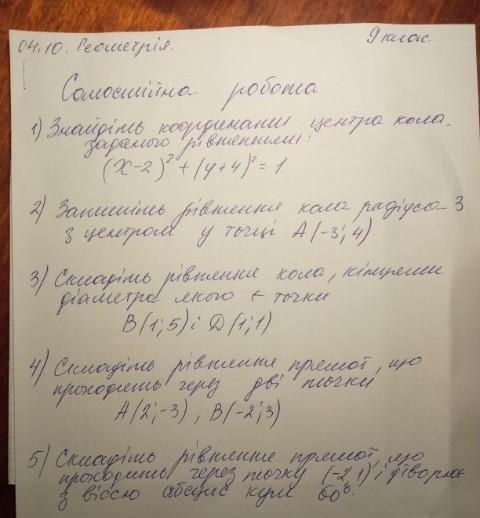 04.10. Геометрія. 9 клас
Самостійна робота.
1) Знайдіть координати центра кола,
заданого рівнянням:
(x-2)² + (y+4)² = 1.
2) Запишіть рівняння кола радіуса 3
з центром у точці A(-3; 4)
3) Складіть рівняння кола, кінцями
діаметра якого є точки
B(1; 5) і D(1; 1)
4) Складіть рівняння прямої, що
проходить через дві точки
A(2; -3), B(-2; 3)
5) Складіть рівняння прямої, що
проходить через точку (-2; 1) і утворює
з віссю абсцис кут 60°.